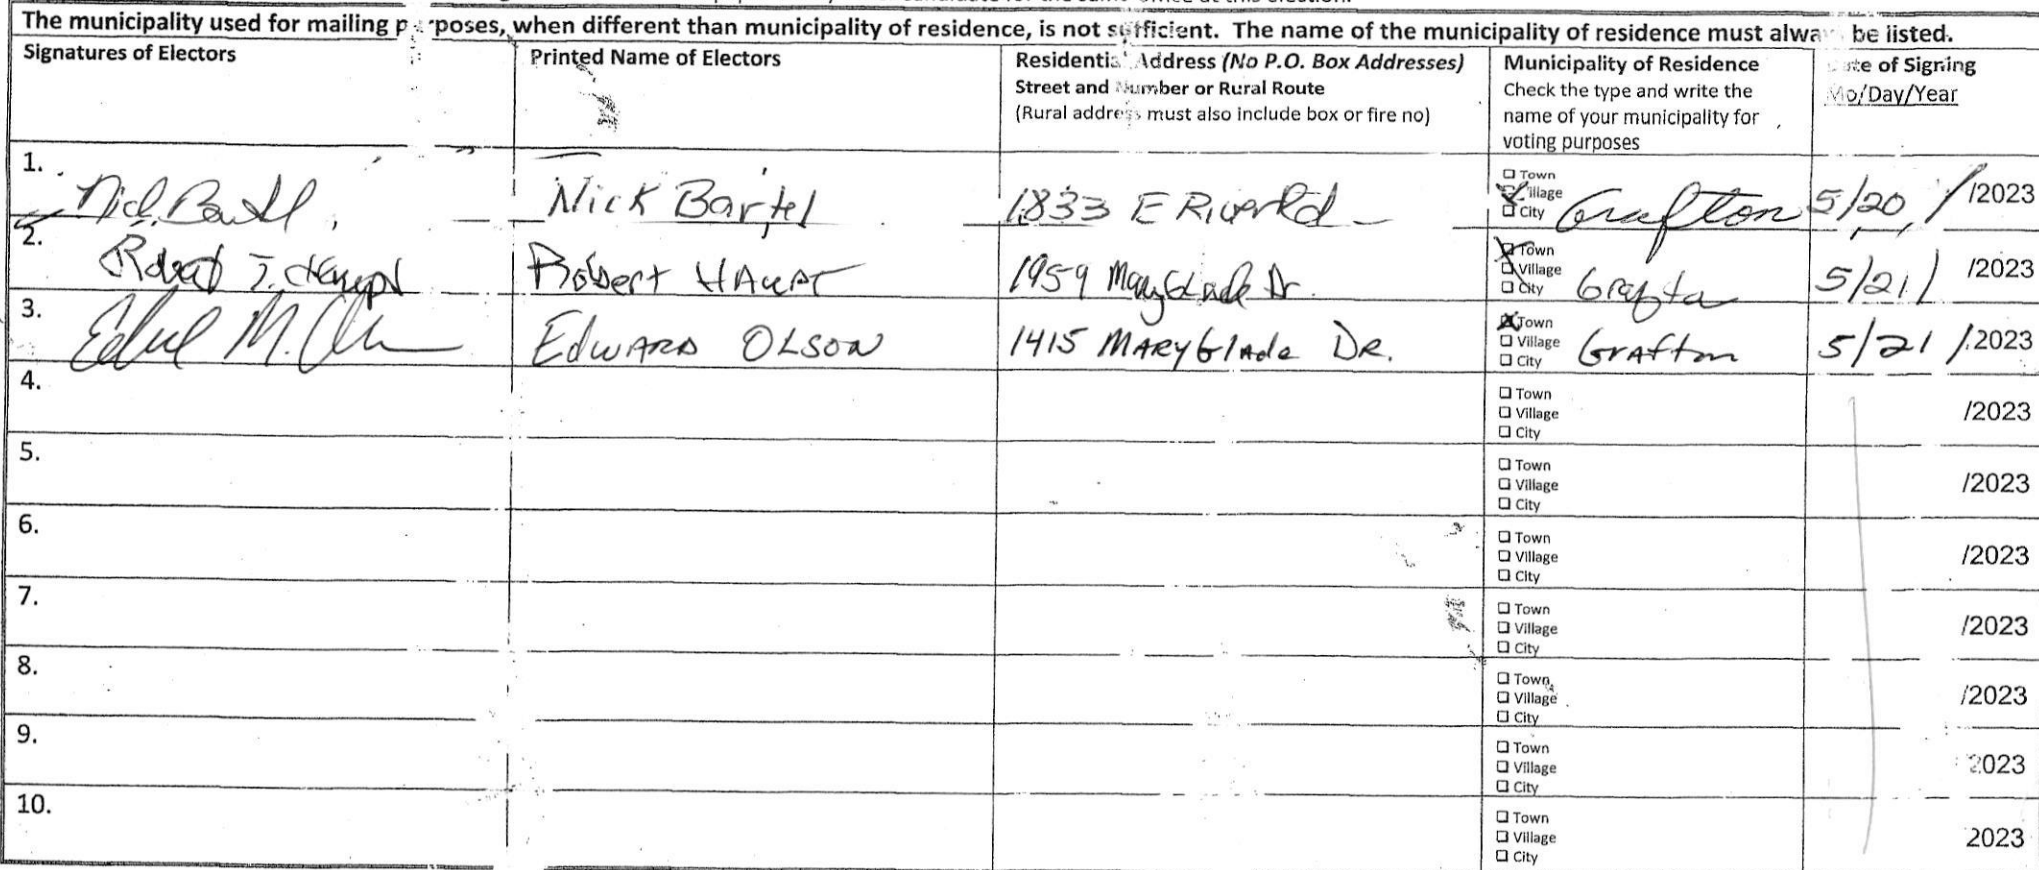 The municipality used for mailing purposes, when different than municipality of residence, is not sufficient. The name of the municipality of residence must always be listed.
Signatures of Electors
Printed Name of Electors
Residential Address (No P.O. Box Addresses)
Street and Number or Rural Route
(Rural address must also include box or fire no)
Municipality of Residence
Check the type and write the
name of your municipality for
voting purposes
Date of Signing
Mo/Day/Year
1. Nick Bartel 1833 E River Rd Town Village City Grafton 5/20/ /2023
2. Robert T. Haupt Robert HAUPT 1959 MaryGlade Dr. Town Village City Grafton 5/21/ /2023
3. Edward M. EDWARD OLSON 1415 MARYGlade DR. Town Village City Grafton 5/21/ /2023
4. Town Village City /2023
5. Town Village City /2023
6. Town Village City /2023
7. Town Village City /2023
8. Town Village City /2023
9. Town Village City 2023
10. Town Village City 2023